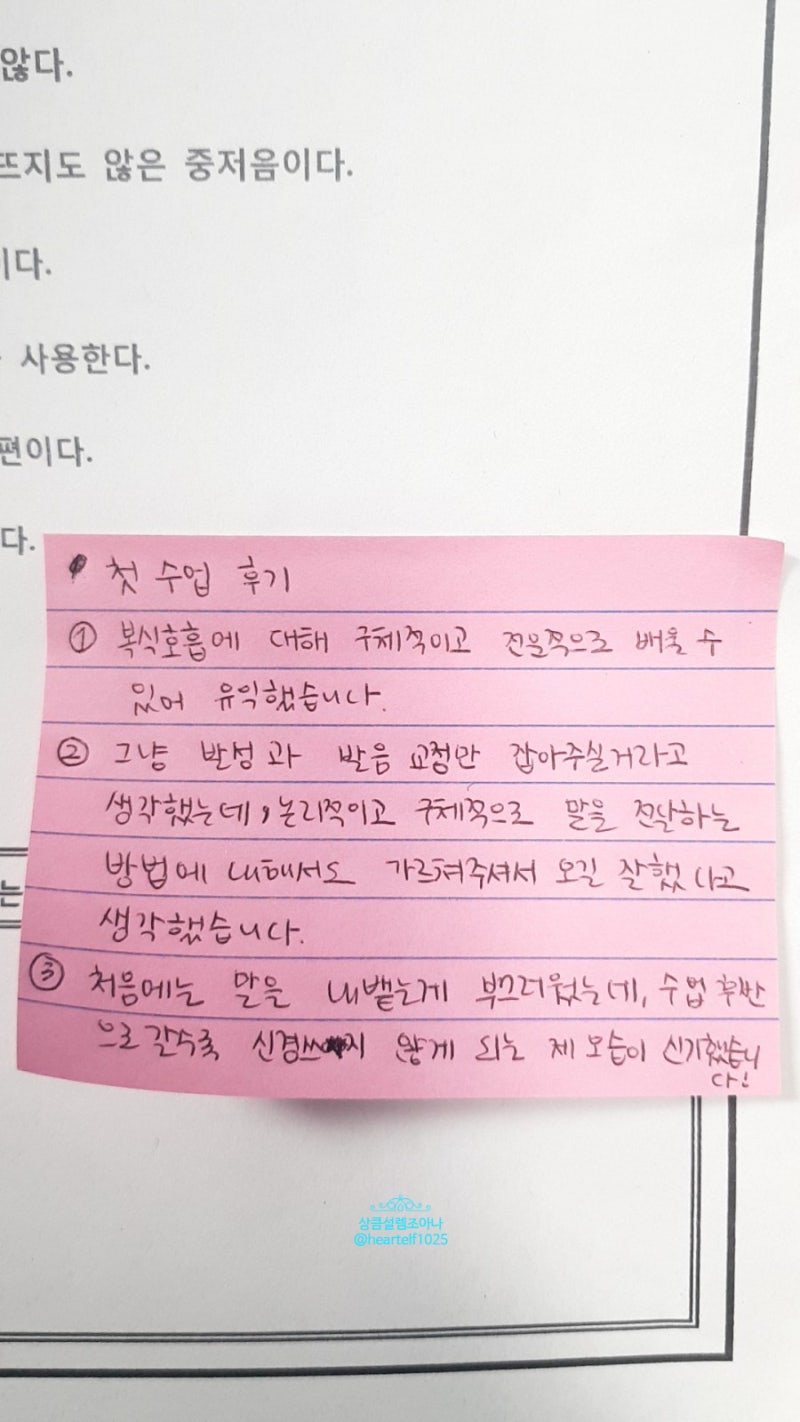 않다.
뜨지도 않은 중저음이다.
이다.
사용한다.
편이다.
다.
첫 수업 후기
① 복식호흡에 대해 구체적이고 전문적으로 배울 수
있어 유익했습니다.
② 그냥 발성과 발음 교정만 잡아주실거라고
생각했는데, 논리적이고 구체적으로 말을 전달하는
방법에 대해서도 가르쳐주셔서 오길 잘했다고
생각했습니다.
는
③ 처음에는 말을 내뱉는게 부끄러웠는데, 수업 후반
으로 갈수록 신경쓰지 않게 되는 제 모습이 신기했습니
다!
상큼설렘조아나
@heartelf1025